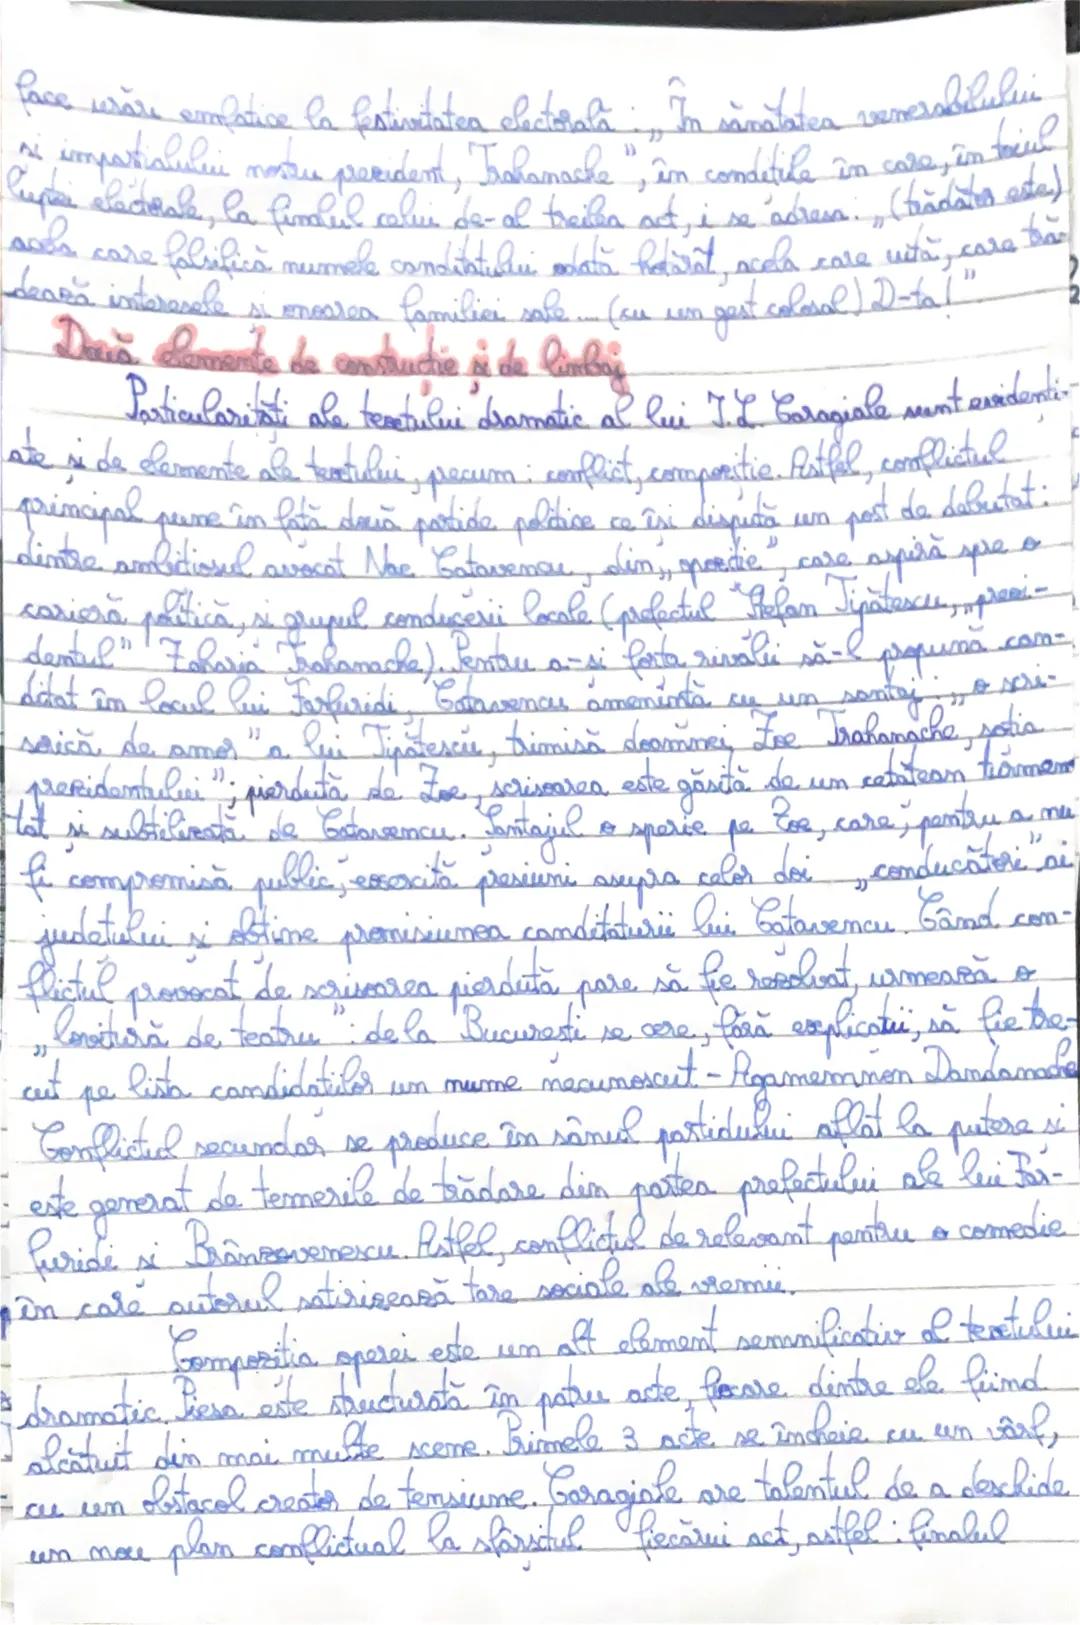 face urări emfatice la festivitatea electorală: „În sănătatea venerabilului
și imparțialului nostru prezident, Trahanache", în condițiile în care, în toiul
luptei electorale, la finalul celui de-al treilea act, i se adresa: „(trădător este)
acela care falsifică numele canditatului odată hotărât, acela care uită, care tră-
dează interesele și onoarea familiei sale... (cu un gest colosal) D-ta!"
Două elemente de construcție și de limbaj
Particularități ale textului dramatic al lui I.L. Caragiale sunt evidenți-
ate și de elemente ale textului, precum: conflict, compoziție. Astfel, conflictul
principal pune în față două partide politice ce își dispută un post de debutat:
dintre ambițiosul avocat Nae Catavencu, din „opoziție", care aspiră spre o
carieră politică, și grupul conducerii locale (prefectul Ștefan Tipătescu, „prezi-
dentul" Zaharia Trahanache). Pentru a-și forța rivalii să-l propună can-
ditat în locul lui Farfuridi, Catavencu amenință cu un santaj: „o scri-
sorică de amor" a lui Tipătescu, trimisă doamnei Zoe Trahanache, soția
prezidentului"; pierdută de Zoe, scrisoarea este găsită de un cetățean turmen
tat și subtilizată de Catavencu. Șantajul o sperie pe Zoe, care, pentru a nu
fi compromisă public, exercită presiuni asupra celor doi „conducători" ai
județului și obține promisiunea canditaturii lui Catavencu. Când con-
flictul provocat de scrisoarea pierdută pare să fie rezolvat, urmează o
„lovitură de teatru": de la București se cere, fără explicații, să fie tre-
cut pe lista candidaților un nume necunoscut - Agamemnon Dandanache
Conflictul secundar se produce în sânul partidului aflat la putere și
este generat de temerile de trădare din partea prefectului ale lui Far-
furidi și Brânzovenescu. Astfel, conflictul de relevant pentru o comedie
în care autorul satirizează tare sociale ale vremii.
Compoziția operei este un alt element semnificativ al textului
dramatic. Piesa este structurată în patru acte, fiecare dintre ele fiind
alcătuit din mai multe scene. Primele 3 acte se încheie cu un vârf,
cu un obstacol creator de tensiune. Caragiale are talentul de a deschide
un nou plan conflictual la sfârșitul fiecărui act, astfel: finalul